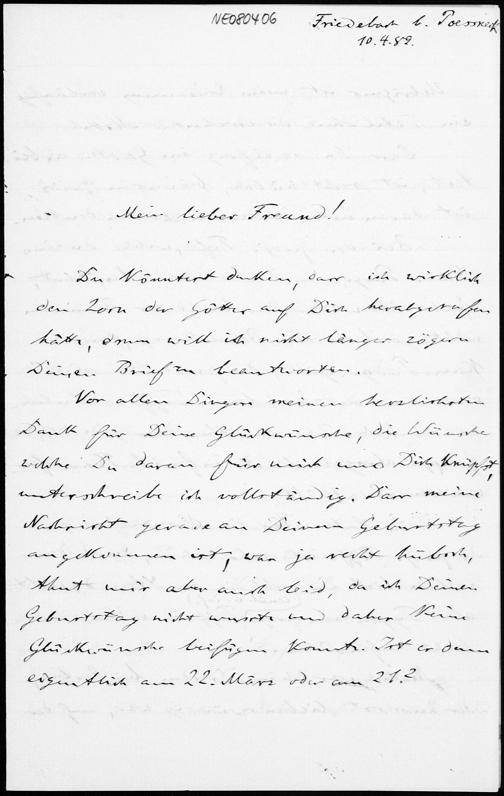 NE080406
Friedebach b. Poessneck
10.4.89.
Mein lieber Freund!
Du könntest denken, dass ich wirklich
den Zorn der Götter auf Dich herabgerufen
hätte, drum will ich nicht länger zögern
Deinen Brief zu beantworten.
Vor allen Dingen meinen herzlichsten
Dank für Deine Glückwünsche, die Wünsche
welche Du daran für mich und Dich knüpfst,
unterschreibe ich vollständig. Dass meine
Nachricht gerade an Deinem Geburtstag
angekommen ist, war ja recht hübsch,
thut mir aber auch leid, da ich Deinen
Geburtstag nicht wusste und daher keine
Glückwünsche beifügen konnte. Ist er denn
eigentlich am 22. März oder am 21?